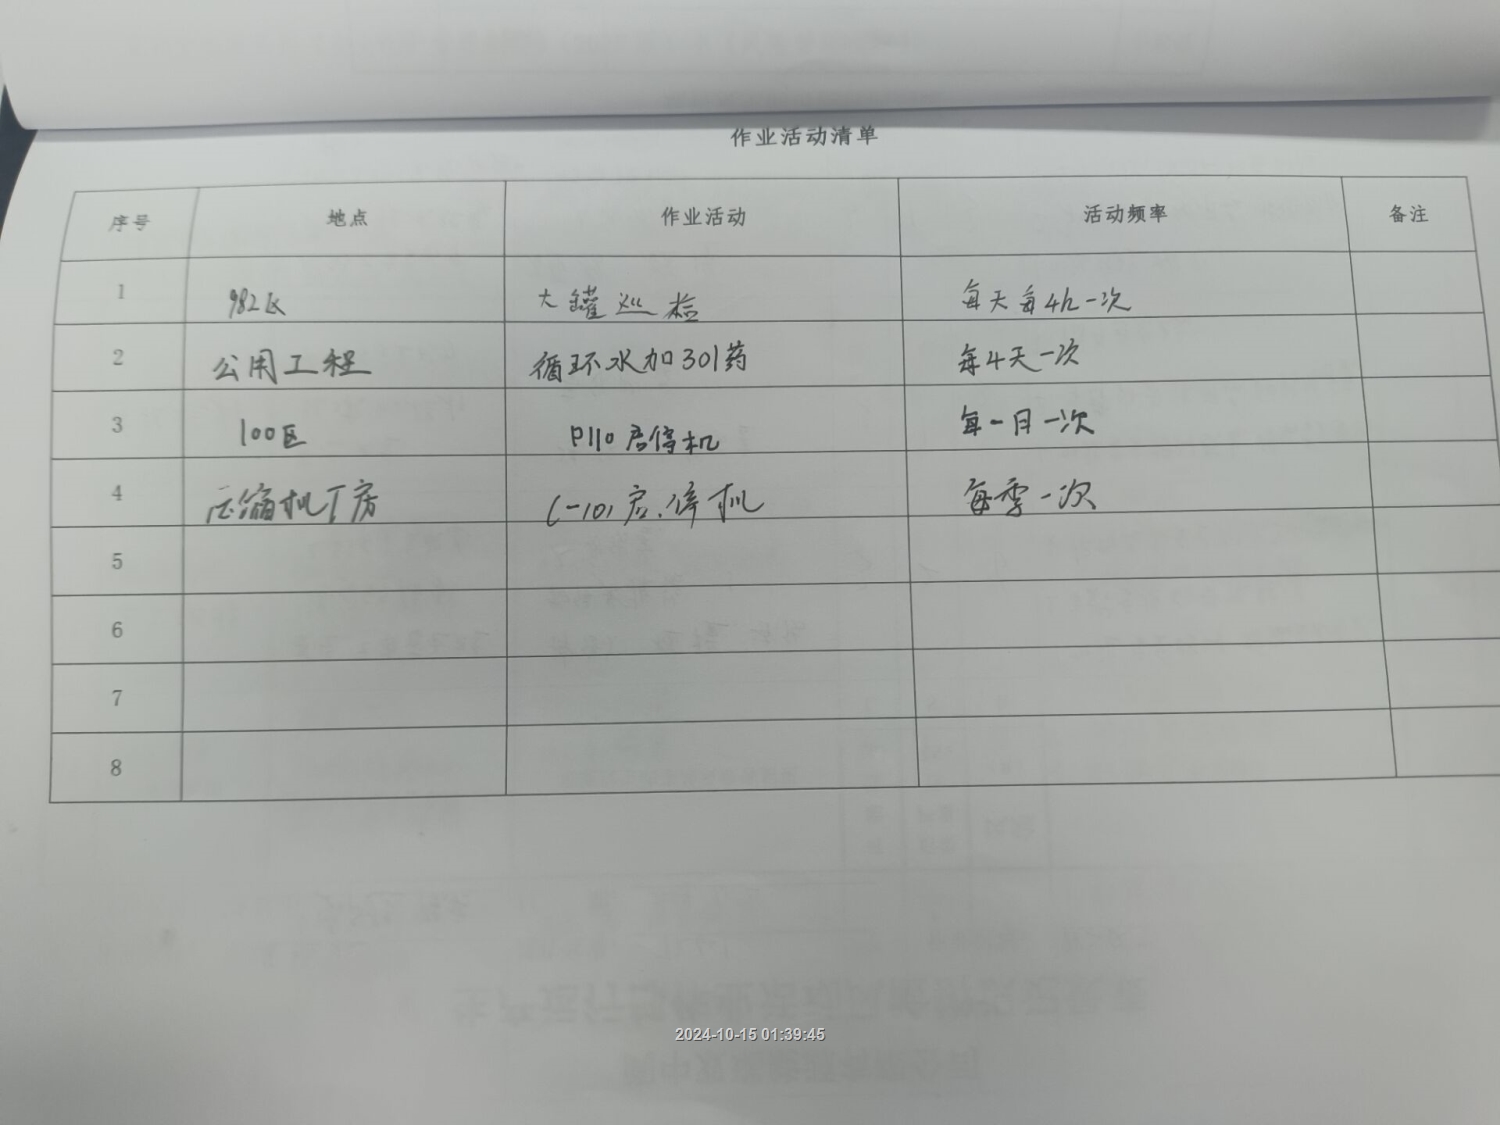 作业活动清单
序号 地点 作业活动 活动频率 备注
1 982区 大罐巡检 每天每4h一次
2 公用工程 循环水加301药 每4天一次
3 100区 P110启停机 每一月一次
4 压缩机厂房 C-101启.停机 每季一次
5
6
7
8
2024-10-15 01:39:45